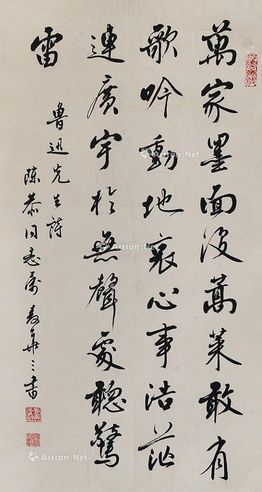 萬家墨面没蒿萊敢有
歌吟動地哀心事浩茫
連廣宇於無聲處聽驚
雷
魯迅先生詩
陈恭同志属麦華三書
Artron.Net